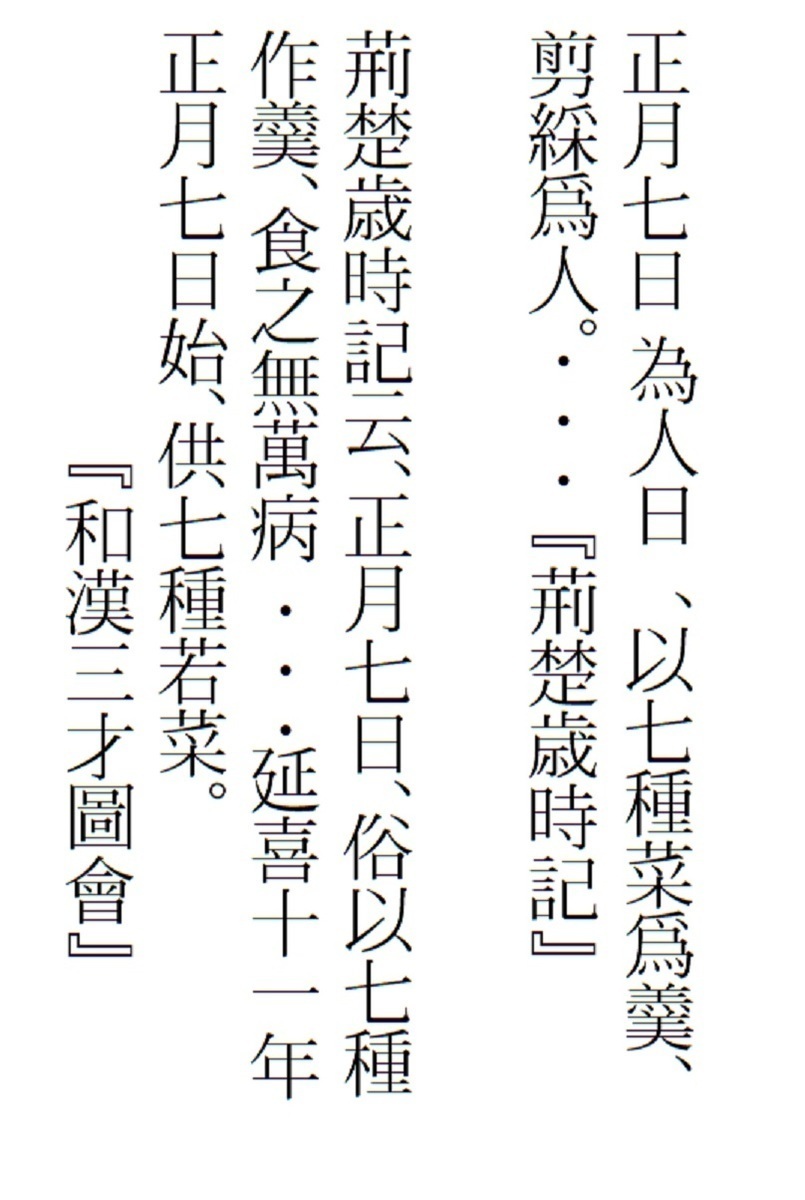 正月七日 為人日 、以七種菜爲羹、
剪綵爲人。・・・『荊楚歳時記』
荊楚歳時記云、正月七日、俗以七種
作羹、食之無萬病・・・延喜十一年
正月七日始、供七種若菜。
『和漢三才圖會』